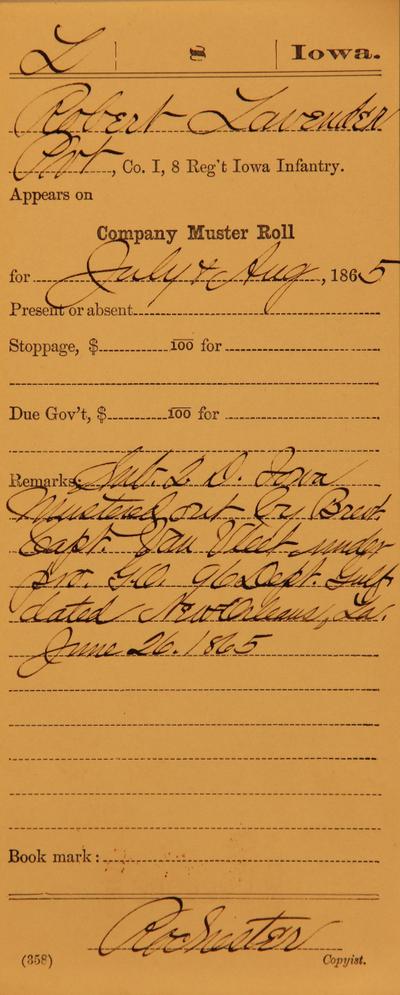 L | 8 | Iowa.
Robert Lavender
Pvt, Co. I, 8 Reg't Iowa Infantry.
Appears on
Company Muster Roll
for July & Aug, 1865
Present or absent
Stoppage, $ 100 for
Due Gov't, $ 100 for
Remarks: Sub. 2 D. Iowa
Mustered out by Brevt.
Capt. Van Vleet under
pro. G.O. 96 Dept. Gulf
dated New Orleans, La.
June 26. 1865
Book mark:
Rochester
(358) Copyist.